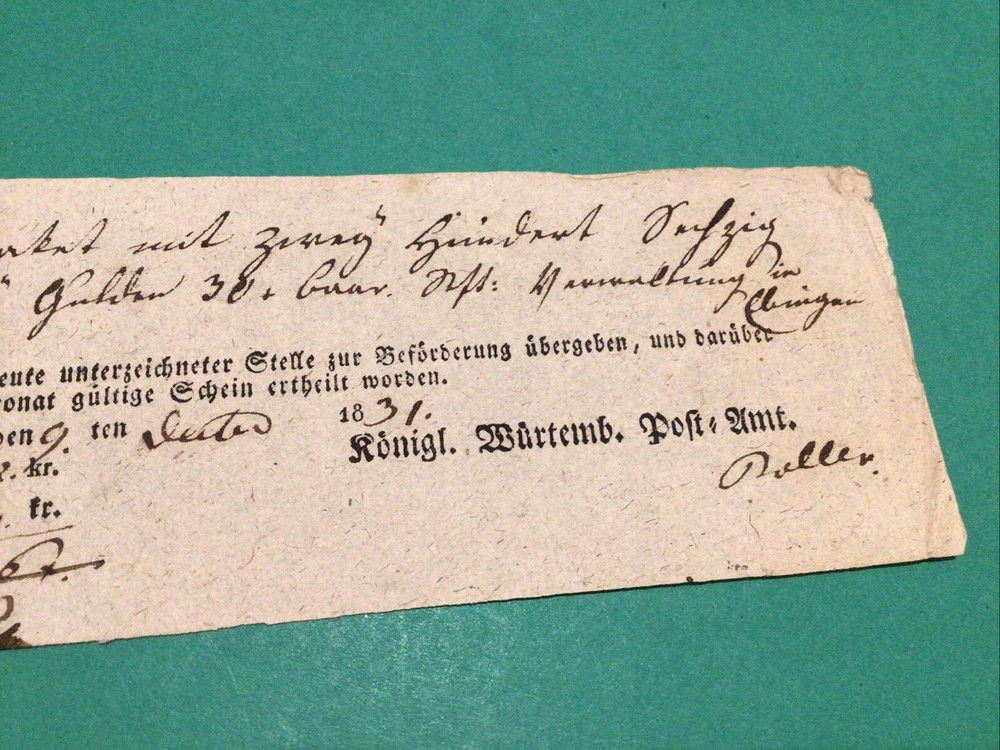 aket mit zwey Hundert Sechzig
Gulden 30. baar. Stfs: Verwaltung in
Ebingen
eute unterzeichneter Stelle zur Beförderung übergeben, und darüber
onat gültige Schein ertheilt worden.
den 9. ten 1831.
kr. Königl. Würtemb. Post-Amt.
kr. Roller.